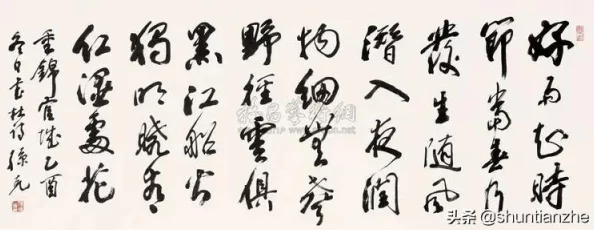 好雨知時
節當春乃
發生隨風
潛入夜潤
物細無聲
野徑雲俱
黑江船火
獨明曉看
紅濕處花
重錦官城乙酉
冬日書杜詩
头条 @shuntianzhe